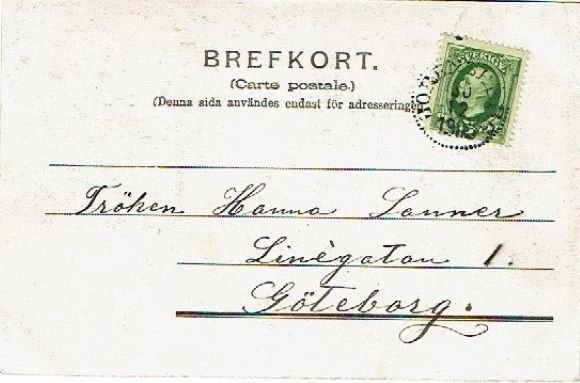 BREFKORT.
(Carte postale.)
(Denna sida användes endast för adresseringen
SVERIGE
30
12
1903
Fröken Hanna Sanner
Linègatan 1.
Göteborg.